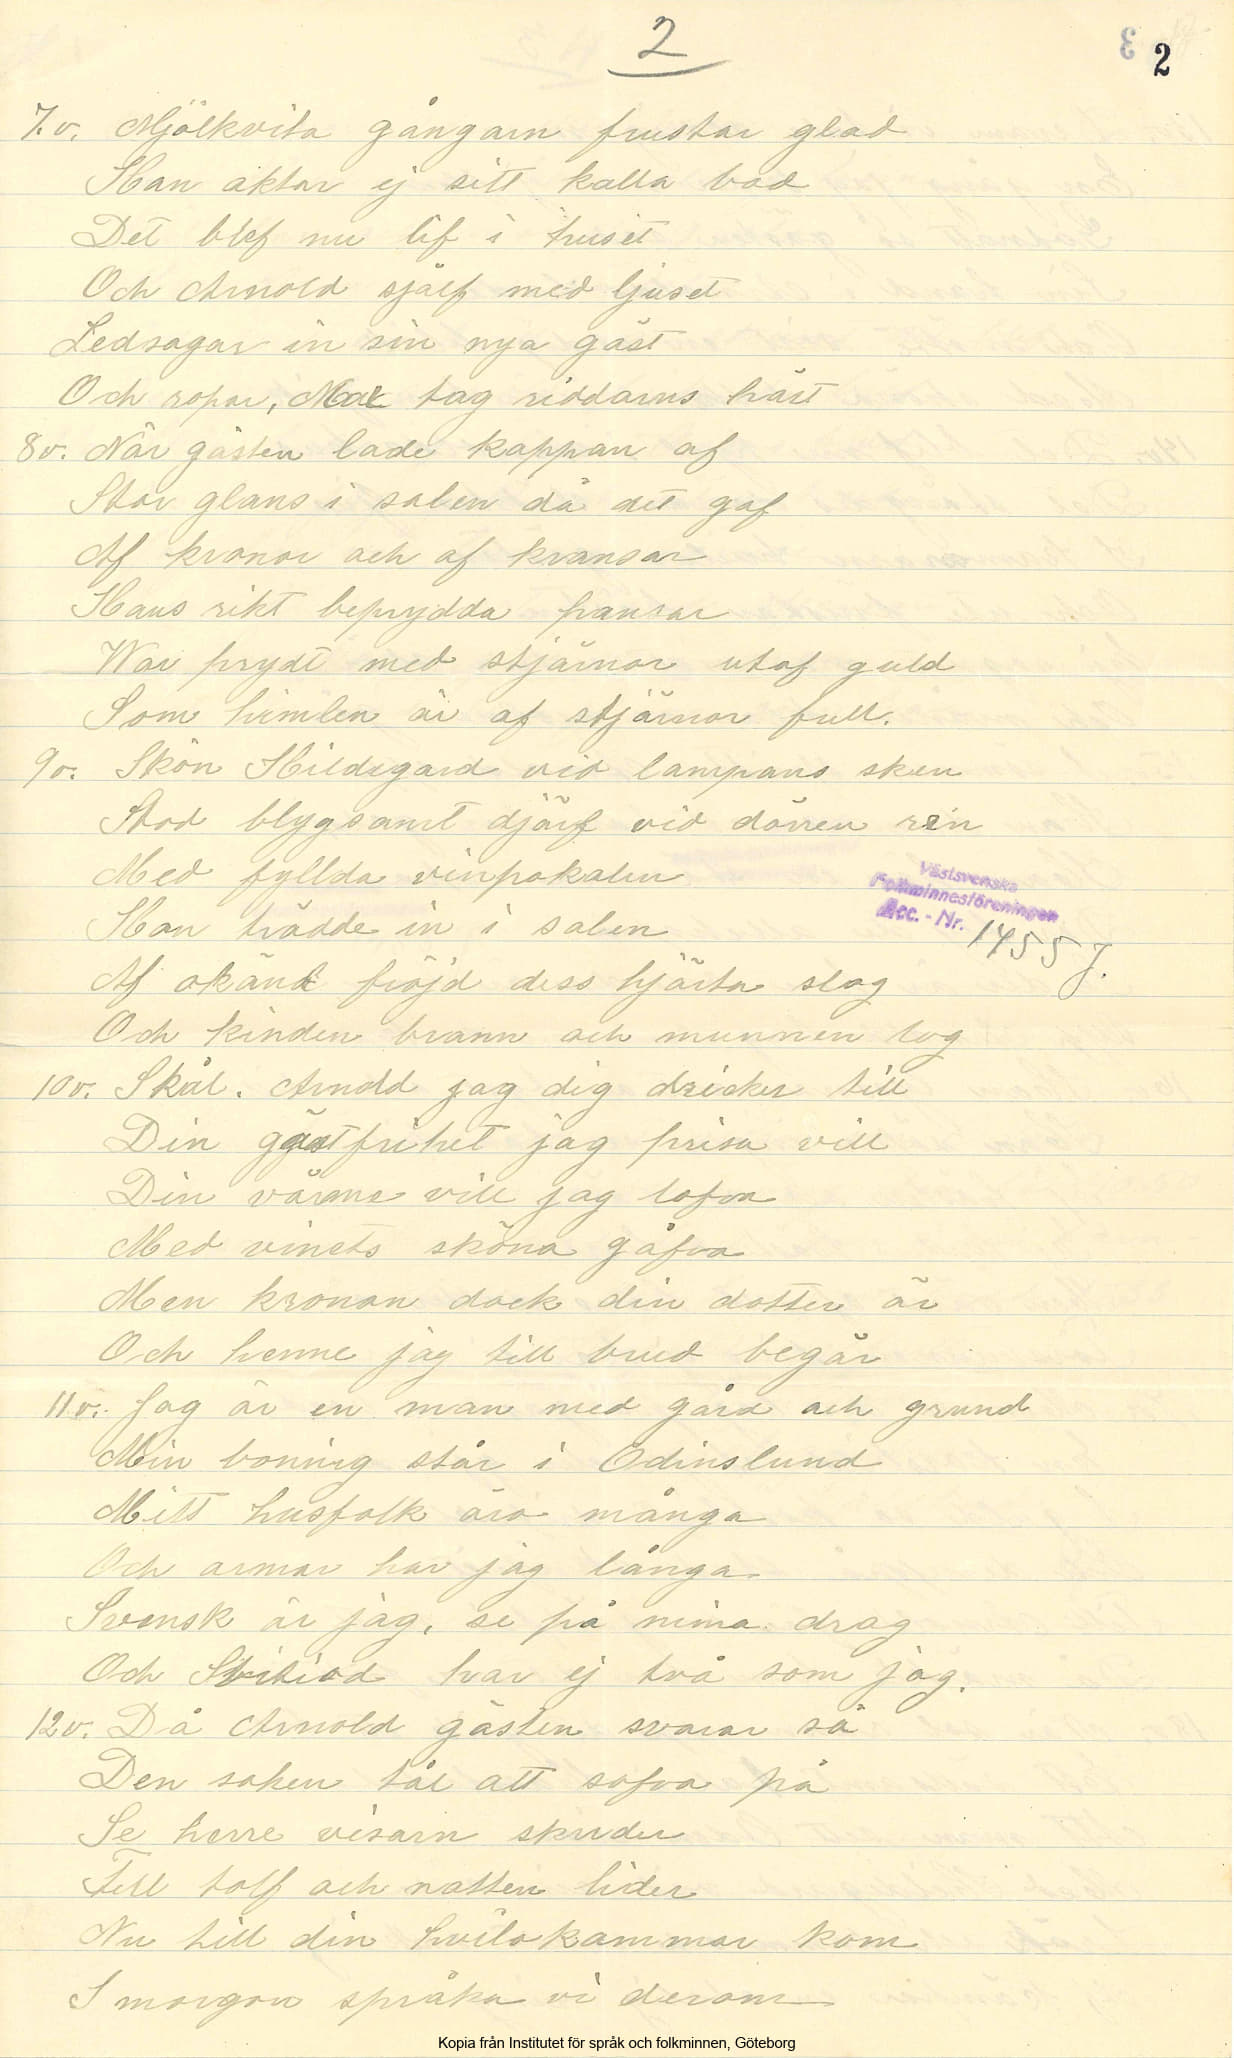 2
3 2
7.v. Mjölkvita gångarn frustar glad
Han aktar ej sitt kalla bad
Det blef nu lif i huset
Och Arnold sjelf med ljuset
Ledsagar in sin nya gäst
Och ropar, Max tag riddarns häst
8v. När gästen lade kappan af
Stor glans i salen då det gaf
Af kronor och af kransar
Hans rikt beprydda pansar
War prydt med stjärnor utaf guld
Som himlen är af stjärnor full.
9v. Skön Hildegard vid lampans sken
Stod blygsamt djärf vid dörren ren
Med fyllda vinpokalen
Han trädde in i salen
Af okänd fröjd dess hjärta slog
Och kinden brann och munnen log
10v. Skål. Arnold jag dig dricker till
Din gästfrihet jag prisa vill
Din värme vill jag lofva
Med vinets sköna gåfva
Men kronan dock din dotter är
Och henne jag till brud begär
11v. Jag är en man med gård och grund
Min boning står i Odinslund
Mitt husfolk äro många
Och armar har jag långa
Svensk är jag, se på mina drag
Och Svitiod har ej två som jag.
12v. Då Arnold gästen svarar så
Den saken tål att sofva på
Se herre visarn skrider
Till tolf och natten lider
Nu till din hvilokammar kom
I morgon språka vi derom
Västsvenska
Folkminnesföreningen
Acc. - Nr. 1455 J.
Kopia från Institutet för språk och folkminnen, Göteborg